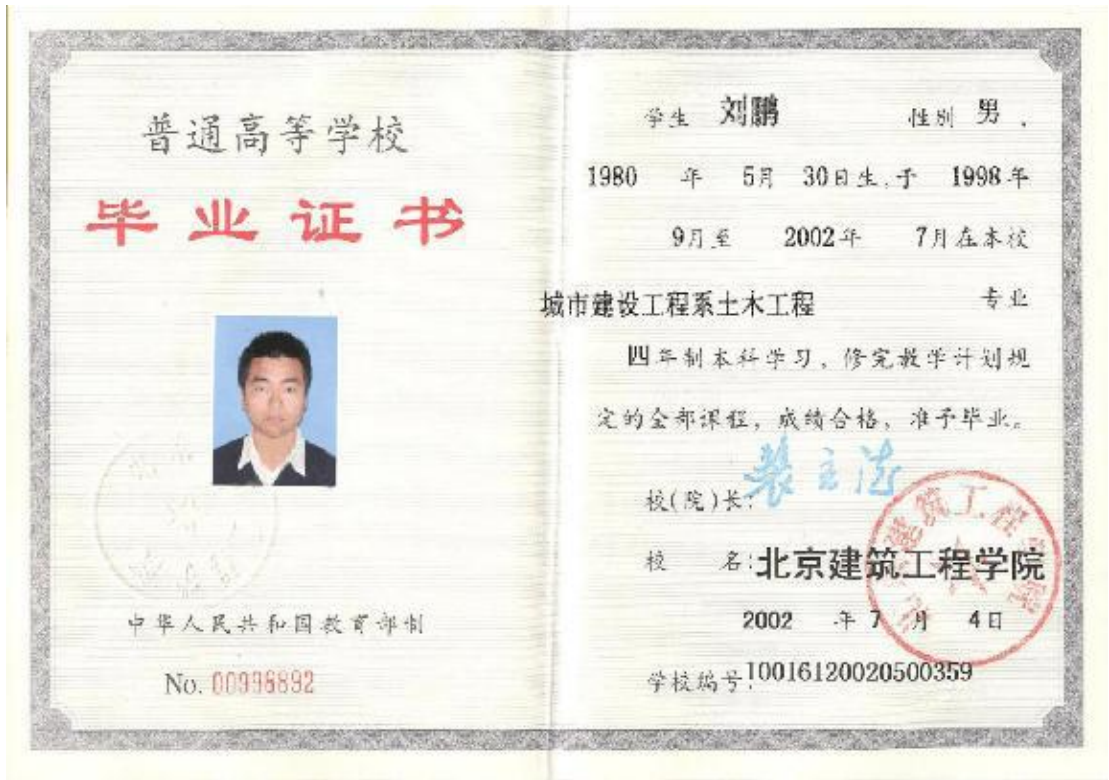 普通高等学校
毕业证书
中华人民共和国教育部制
No. 00998892
学生 刘鹏 性别 男 ,
1980 年 5月 30日生,于 1998年
9月至 2002年 7月在本校
城市建设工程系土木工程 专业
四年制本科学习,修完教学计划规
定的全部课程,成绩合格,准予毕业。
校(院)长:
校 名:北京建筑工程学院
2002 年 7 月 4日
学校编号:10016120020500359